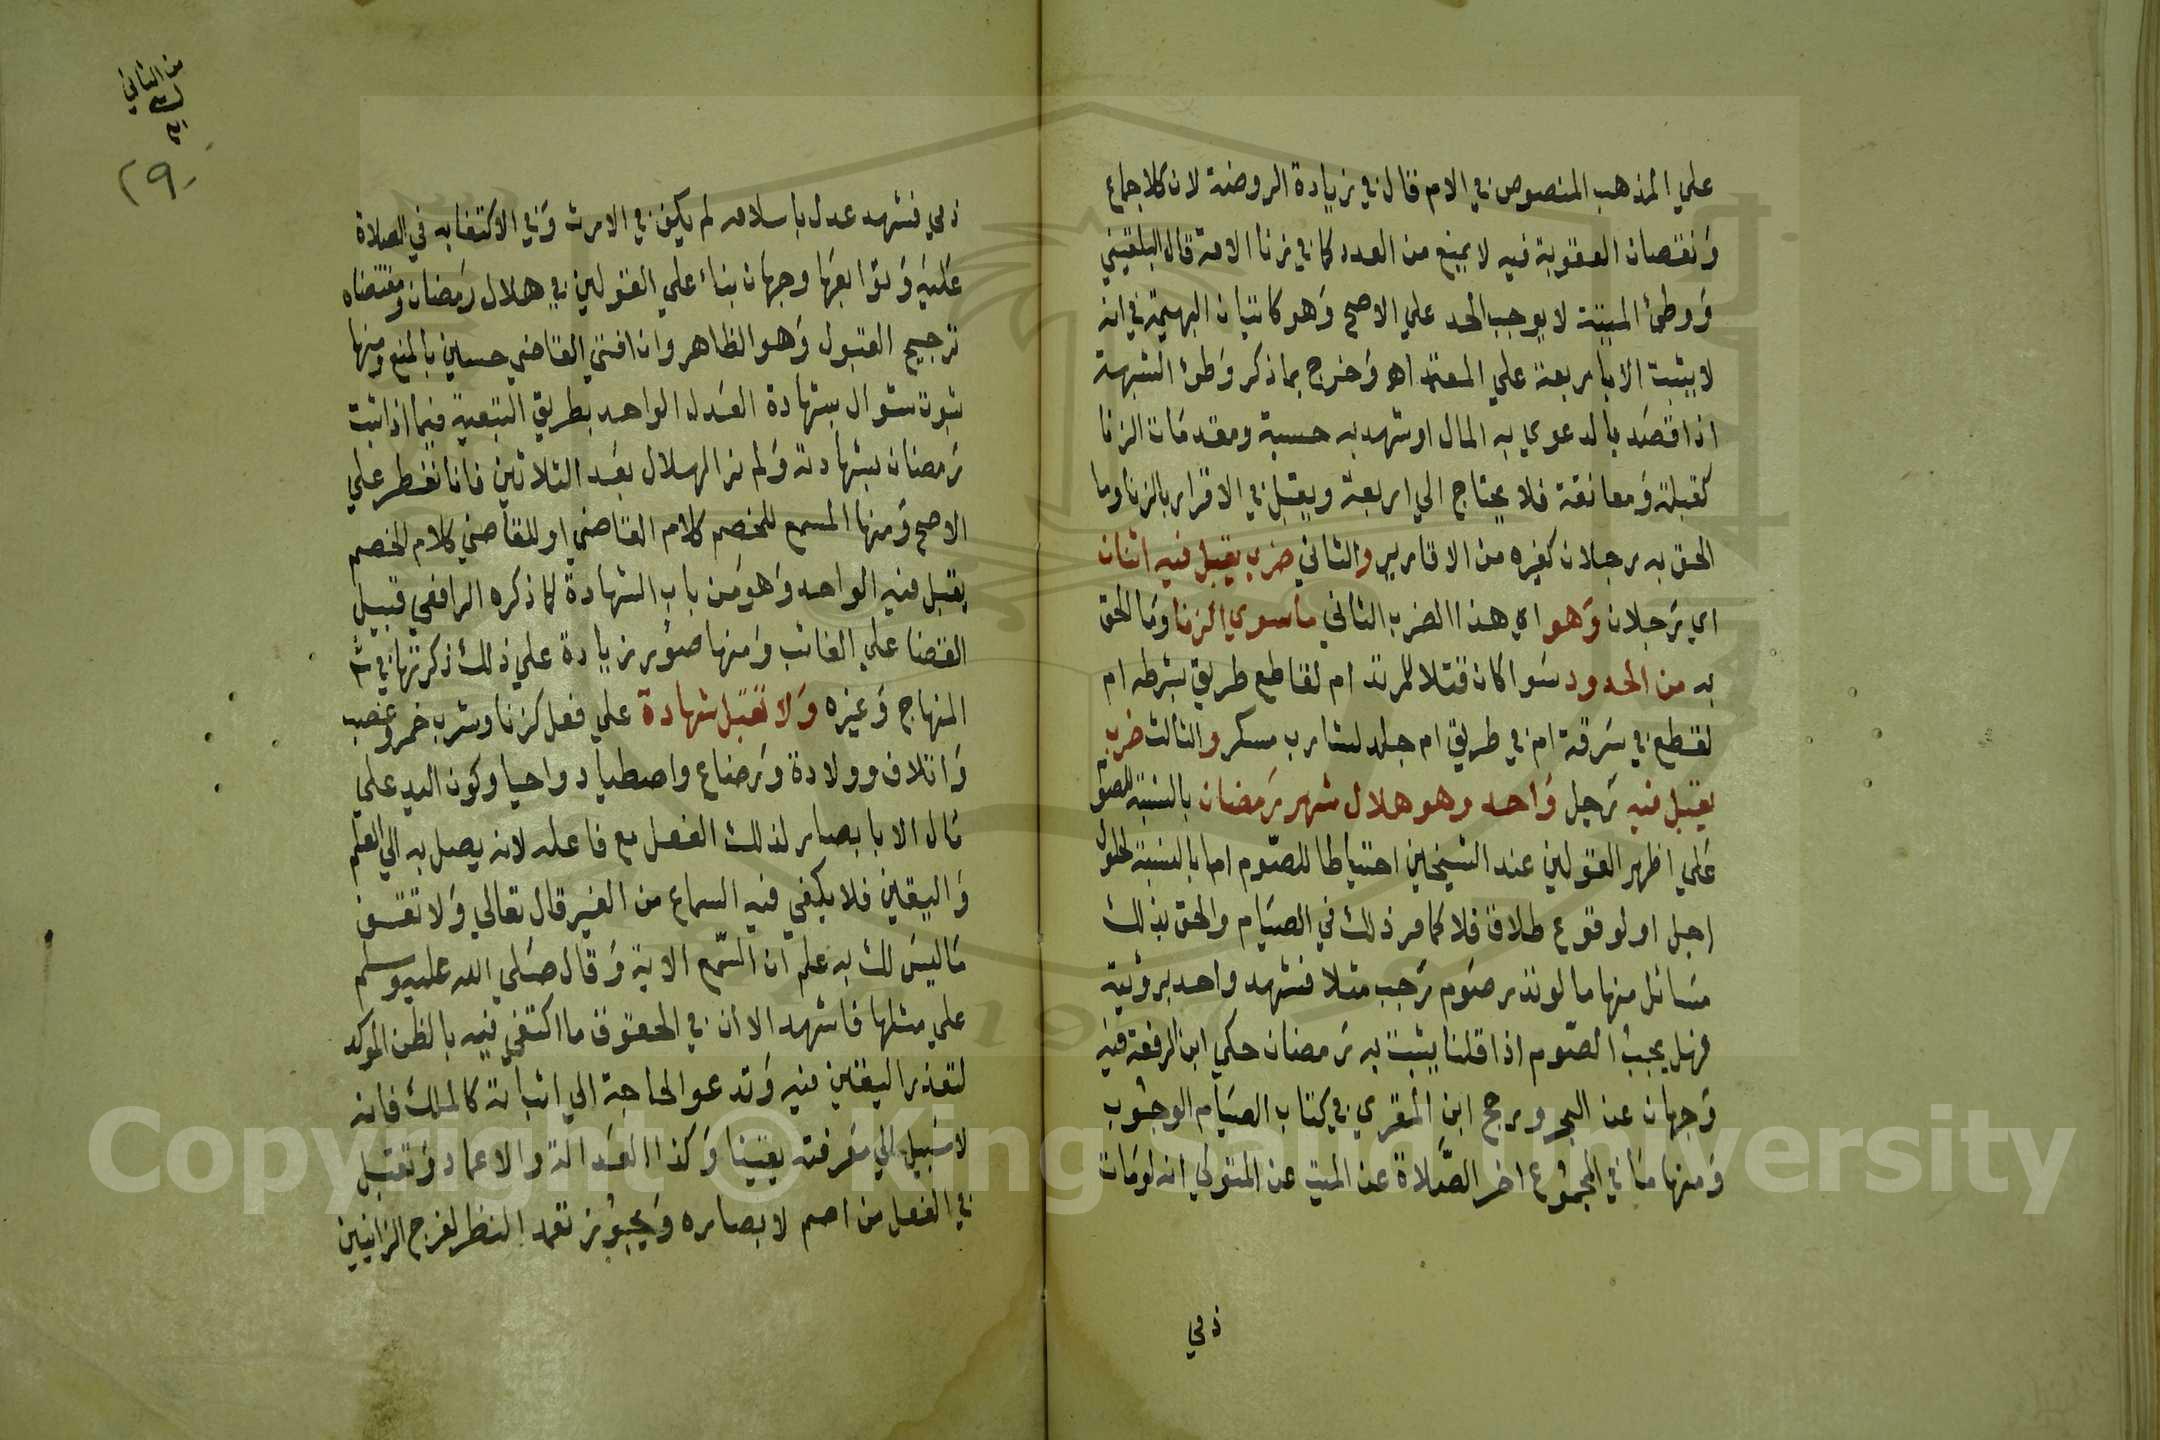 علي المذهب المنصوص في الام قال في زيادة الروضة لان كلا جماع
وَنقصان العقوبة فيه لا يمنع من العدد كما في زنا الامة قال البلقيني
وَوطئ الميتة لا يوجب الحد علي الاصح وَهو كاتيان البهيمة في انه
لا يثبت الا باربعة علي المعتمد اهـ وَخرج بما ذكر وَطؤ الشبهة
اذا قصَد بالدعوي به المال او شهد به حسبة ومقدمَات الزنا
كقبلة وَمعانقة فلا يحتاج الي اربعة ويقبل في الاقرار بالزنا وما
الحق به رجلان كغيره من الاقارير والثاني ضرب يقبل فيه اثنان
اي رَجلان وَهو اي هذا الضرب الثاني ماسوي الزنا وَما الحق
به من الحدود سَوا كان قتلا للمرتد ام لقاطع طريق بشرطه ام
لقطع في سَرقة ام في طريق ام جلد لشارب مسكر والثالث ضرب
يقبل فيه رَجل وَاحد وهو هلال شهر رَمضان بالنسبة للصَوم
عَلي اظهر القولين عند الشيخين احتياطا للصّوم اما بالنسبة لحلول
اجل او لوقوع طلاق فلا كما مر ذلك في الصيَام والحق بذلك
مسَائل منها ما لو نذر صَوم رَجب مثلا فشهد واحد برؤيته
فهل يجب الصّوم اذا قلنا يثبت به رَمضان حكي ابن الرفعة فيه
وَجهان عن البحر ورجح ابن المقري في كتاب الصيَام الوجوب
وَمنها مَا في المجموع اخر الصَّلاة عن الميت عن المتولي انه لومَات
ذمي
من الثاني
٢٩
ذمي فشهد عدل باسلامه لم يكف في الارث وَفي الاكتفا به في الصلاة
عَليه وَتوابعَها وجهان بناء علي القولين في هلال رَمضان ومقتضاه
ترجيح القبول وَهو الظاهر وان افتي القاضي حسين بالمنع ومنها
ثبوت شوال بشهادة العَدل الواحد بطريق التبعية فيما اذا ثبت
رَمضان بشهادته وَلم نر الهلال بعَد الثلاثين فانا نفطر علي
الاصح وَمنها المسمع للخصم كلام القاضي او للقاضي كلام الخصم
يقبل فيه الواحد وَهو مَن باب الشهادة كما ذكره الرافعي قبيل
القضا علي الغائب وَمنها صوَر زيادة علي ذلك ذكرتها في ش
المنهاج وَغيره وَلا تقبل شهادة علي فعل كزنا وشرب خمر وغصب
وَاتلاف وولادة وَرَضاع واصطياد واحيا وكون اليد علي
مَال الا بابصار لذلك الفعل مع فاعله لانه يصل به الي العلم
وَاليقين فلا يكفي فيه السماع من الغير قال تعالي وَلا تقف
مَاليسَ لك به علم ان السّمع الاية وَقال صَلي الله عليه وسلم
علي مثلها فاشهد الا ان في الحقوق ما اكتفي فيه بالظن الموكد
لتعذر اليقين فيه وَتدعو الحاجة الي اثباته كالملك فانه
لا سَبيل الي مَعرفته يقينا وَكذا العَدالة والاعساد وَتقبل
في الفعل من اصم لابصاره وَيجوز تعمد النظر لفرج الزانيين